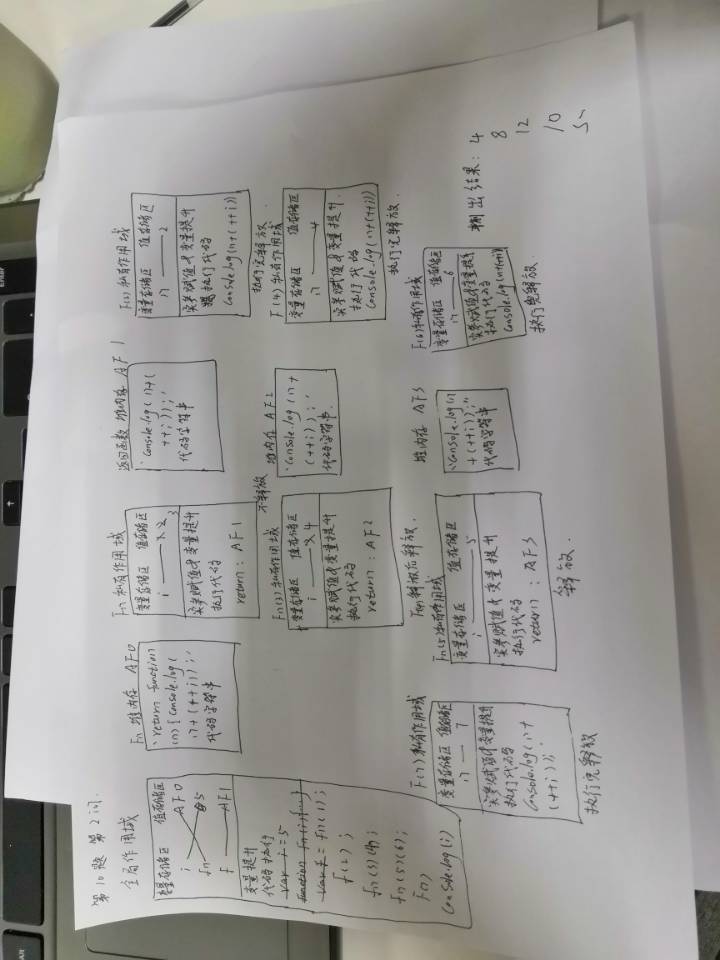 第10题 第2问
全局作用域
变量存储区 值存储区
i AF0
fn 5
f AF1
变量提升
代码执行
var i=5
function fn(i){...}
var f = fn(1);
f(2);
fn(3)(4);
fn(5)(6);
f(7)
Console.log(i)
Fn 堆内存 AF0
"return function
(n){Console.log(
n+(++i));"
代码字符串
Fn 私有作用域
变量存储区 值存储区
i 1 2 3
实参赋值中变量提升
执行代码
return: AF1
不释放
返回函数 堆内存 AF1
"Console.log(n+(
++i));"
代码字符串
F(2)私有作用域
变量存储区 值存储区
n 2
实参赋值中变量提升
执行代码
Console.log(n+(++i))
执行完释放
Fn(3)私有作用域
变量存储区 值存储区
i 3 4
实参赋值中变量提升
执行代码
return: AF2
堆内存 AF2
"Console.log(n+
(++i));"
代码字符串
F(4)私有作用域
变量存储区 值存储区
n 4
实参赋值中变量提升
执行代码
Console.log(n+(++i))
执行完释放.
F(7)私有作用域
变量存储区 值存储区
n 7
实参赋值中变量提升
执行代码
Console.log(n+
(++i));
执行完释放
释放后释放.
Fn(5)私有作用域
变量存储区 值存储区
i 5
实参赋值中变量提升
执行代码
return: AF3
释放.
堆内存 AF3
"Console.log(n
+(++i));"
代码字符串
F(6)私有作用域
变量存储区 值存储区
n 6
实参赋值中变量提升
执行代码
Console.log(n+(++i))
执行完释放.
输出结果: 4
8
12
10
5